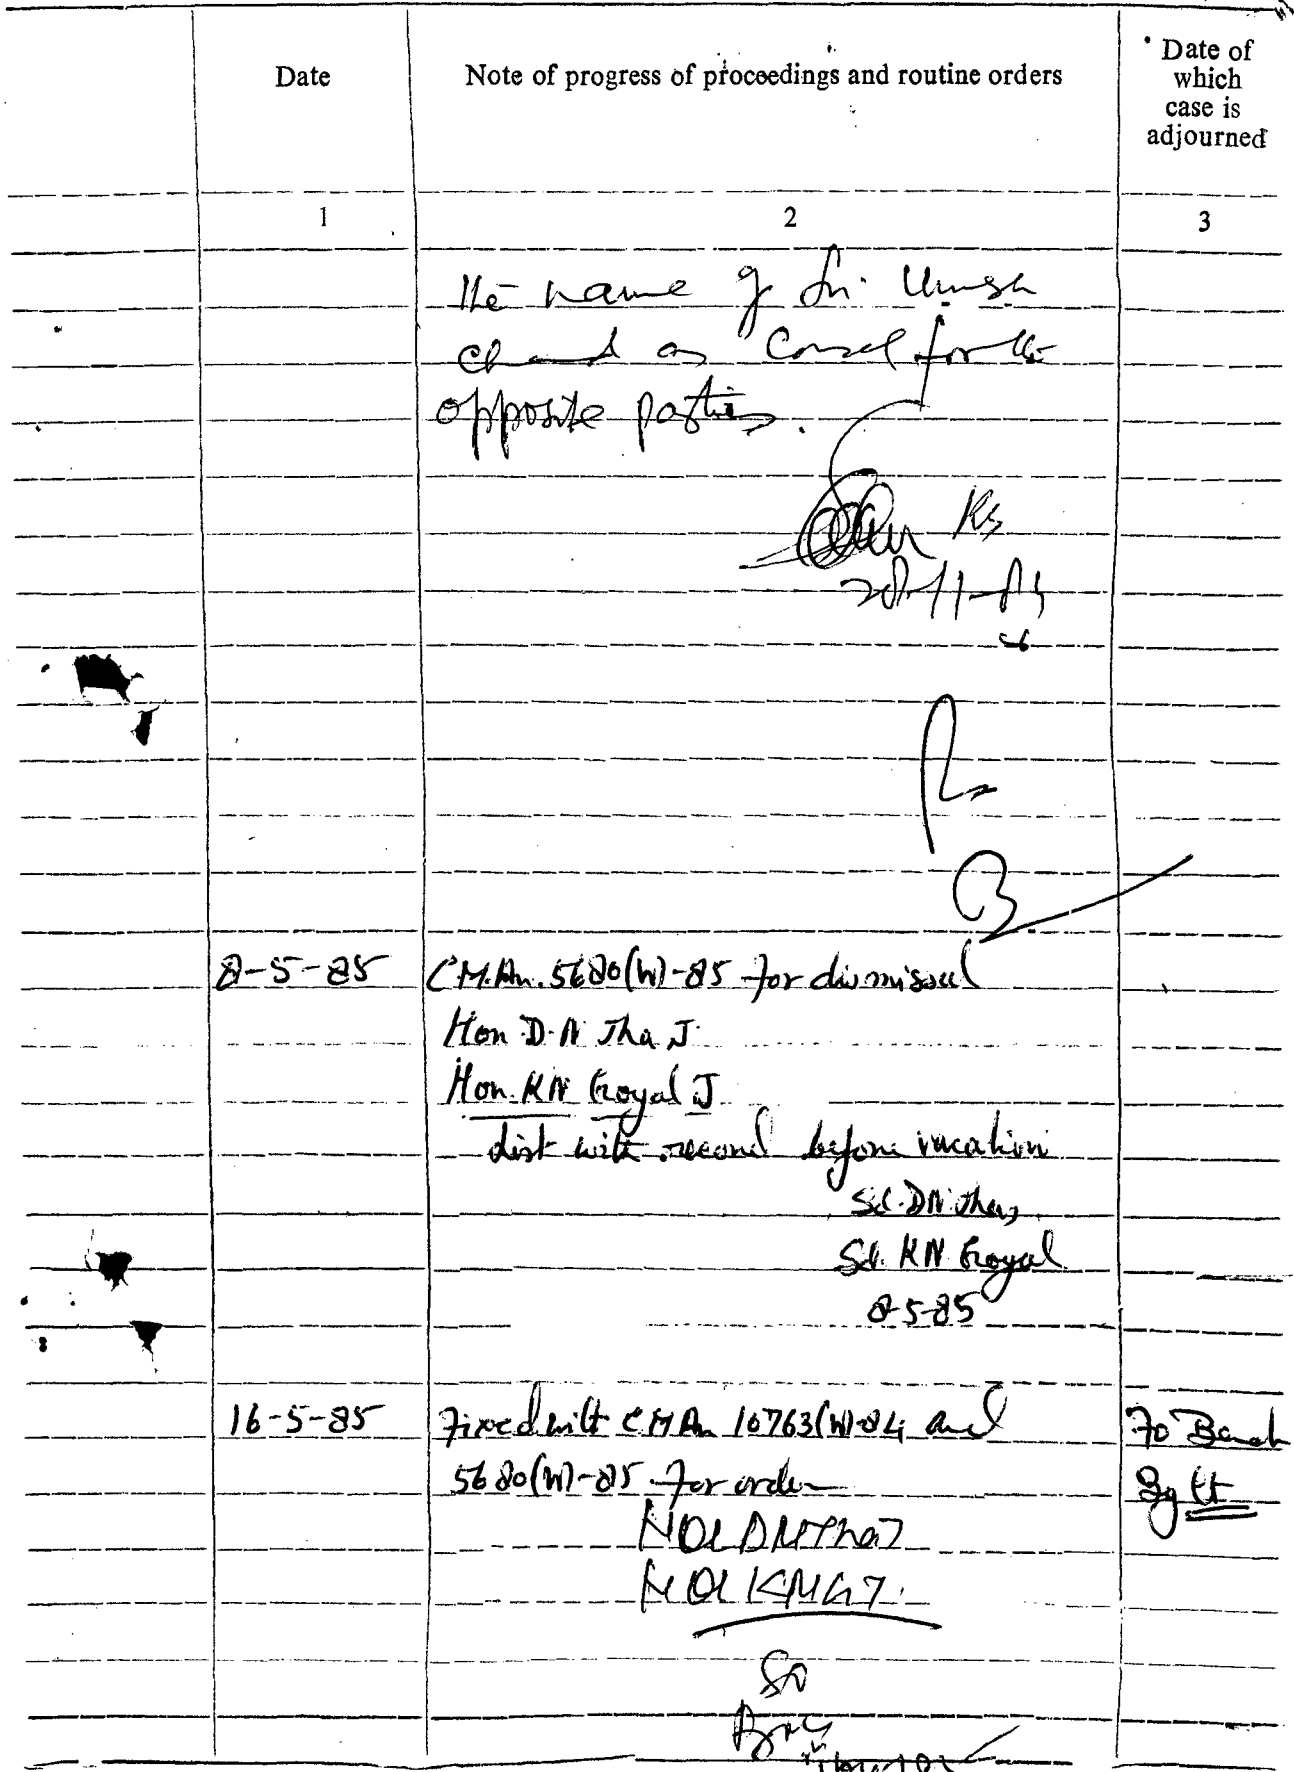 Date
Note of progress of proceedings and routine orders
Date of
which
case is
adjourned
1
2
3
The name of Sri Umesh
Chand as Counsel for the
opposite parties.
8-5-85
C.M.An. 5680(W)-85 for dismissal
Hon D.N Jha J
Hon. KN Goyal J
List with record before vacation
Sd. DN Jha,
Sd. KN Goyal
8-5-85
16-5-85
Fixed with C M An 10763(W)-84 and
5680(W)-85 for order
To Bench